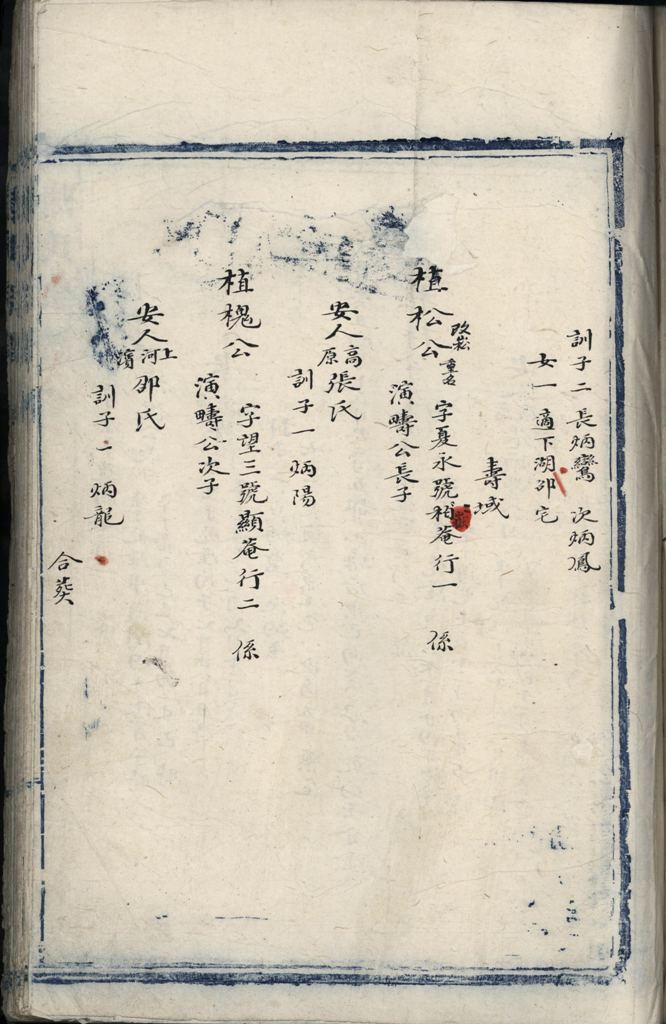 訓子二 長炳鸞 次炳鳳
女一 適下湖邵宅
壽域
植松公 改崧 重名 字夏永號菴行一 係
演疇公長子
安人高原張氏
訓子一 炳陽
植槐公 字望三號顯菴行二 係
演疇公次子
安人上河濱邵氏
訓子一 炳龍
合葬